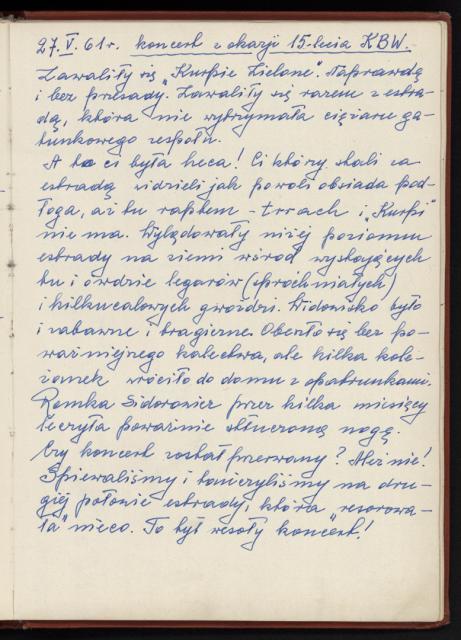 27.V.61 r. koncert z okazji 15-lecia KBW.
Zawaliły się „Kurpie Zielone". Naprawdę
i bez przesady. Zawaliły się razem z estra-
dą, która nie wytrzymała ciężaru ga-
tunkowego zespołu.
A to ci była heca! Ci którzy stali za
estradą widzieli jak powoli obsiada pod-
łoga, aż tu raptem - trrach i „Kurpi"
nie ma. Wylądowały niżej poziomu
estrady na ziemi wśród wystających
tu i ówdzie legarów (spróchniałych)
i kilkucalowych gwoździ. Widowisko było
i zabawne i tragiczne. Obeszło się bez po-
ważniejszego kalectwa, ale kilka kole-
żanek wróciło do domu z opatrunkami.
Romka Sidorowicz przez kilka miesięcy
leczyła poważnie stłuczoną nogę.
Czy koncert został przerwany? Ależ nie!
Śpiewaliśmy i tańczyliśmy na dru-
giej połowie estrady, która „resorowa-
ła" nieco. To był wesoły koncert!